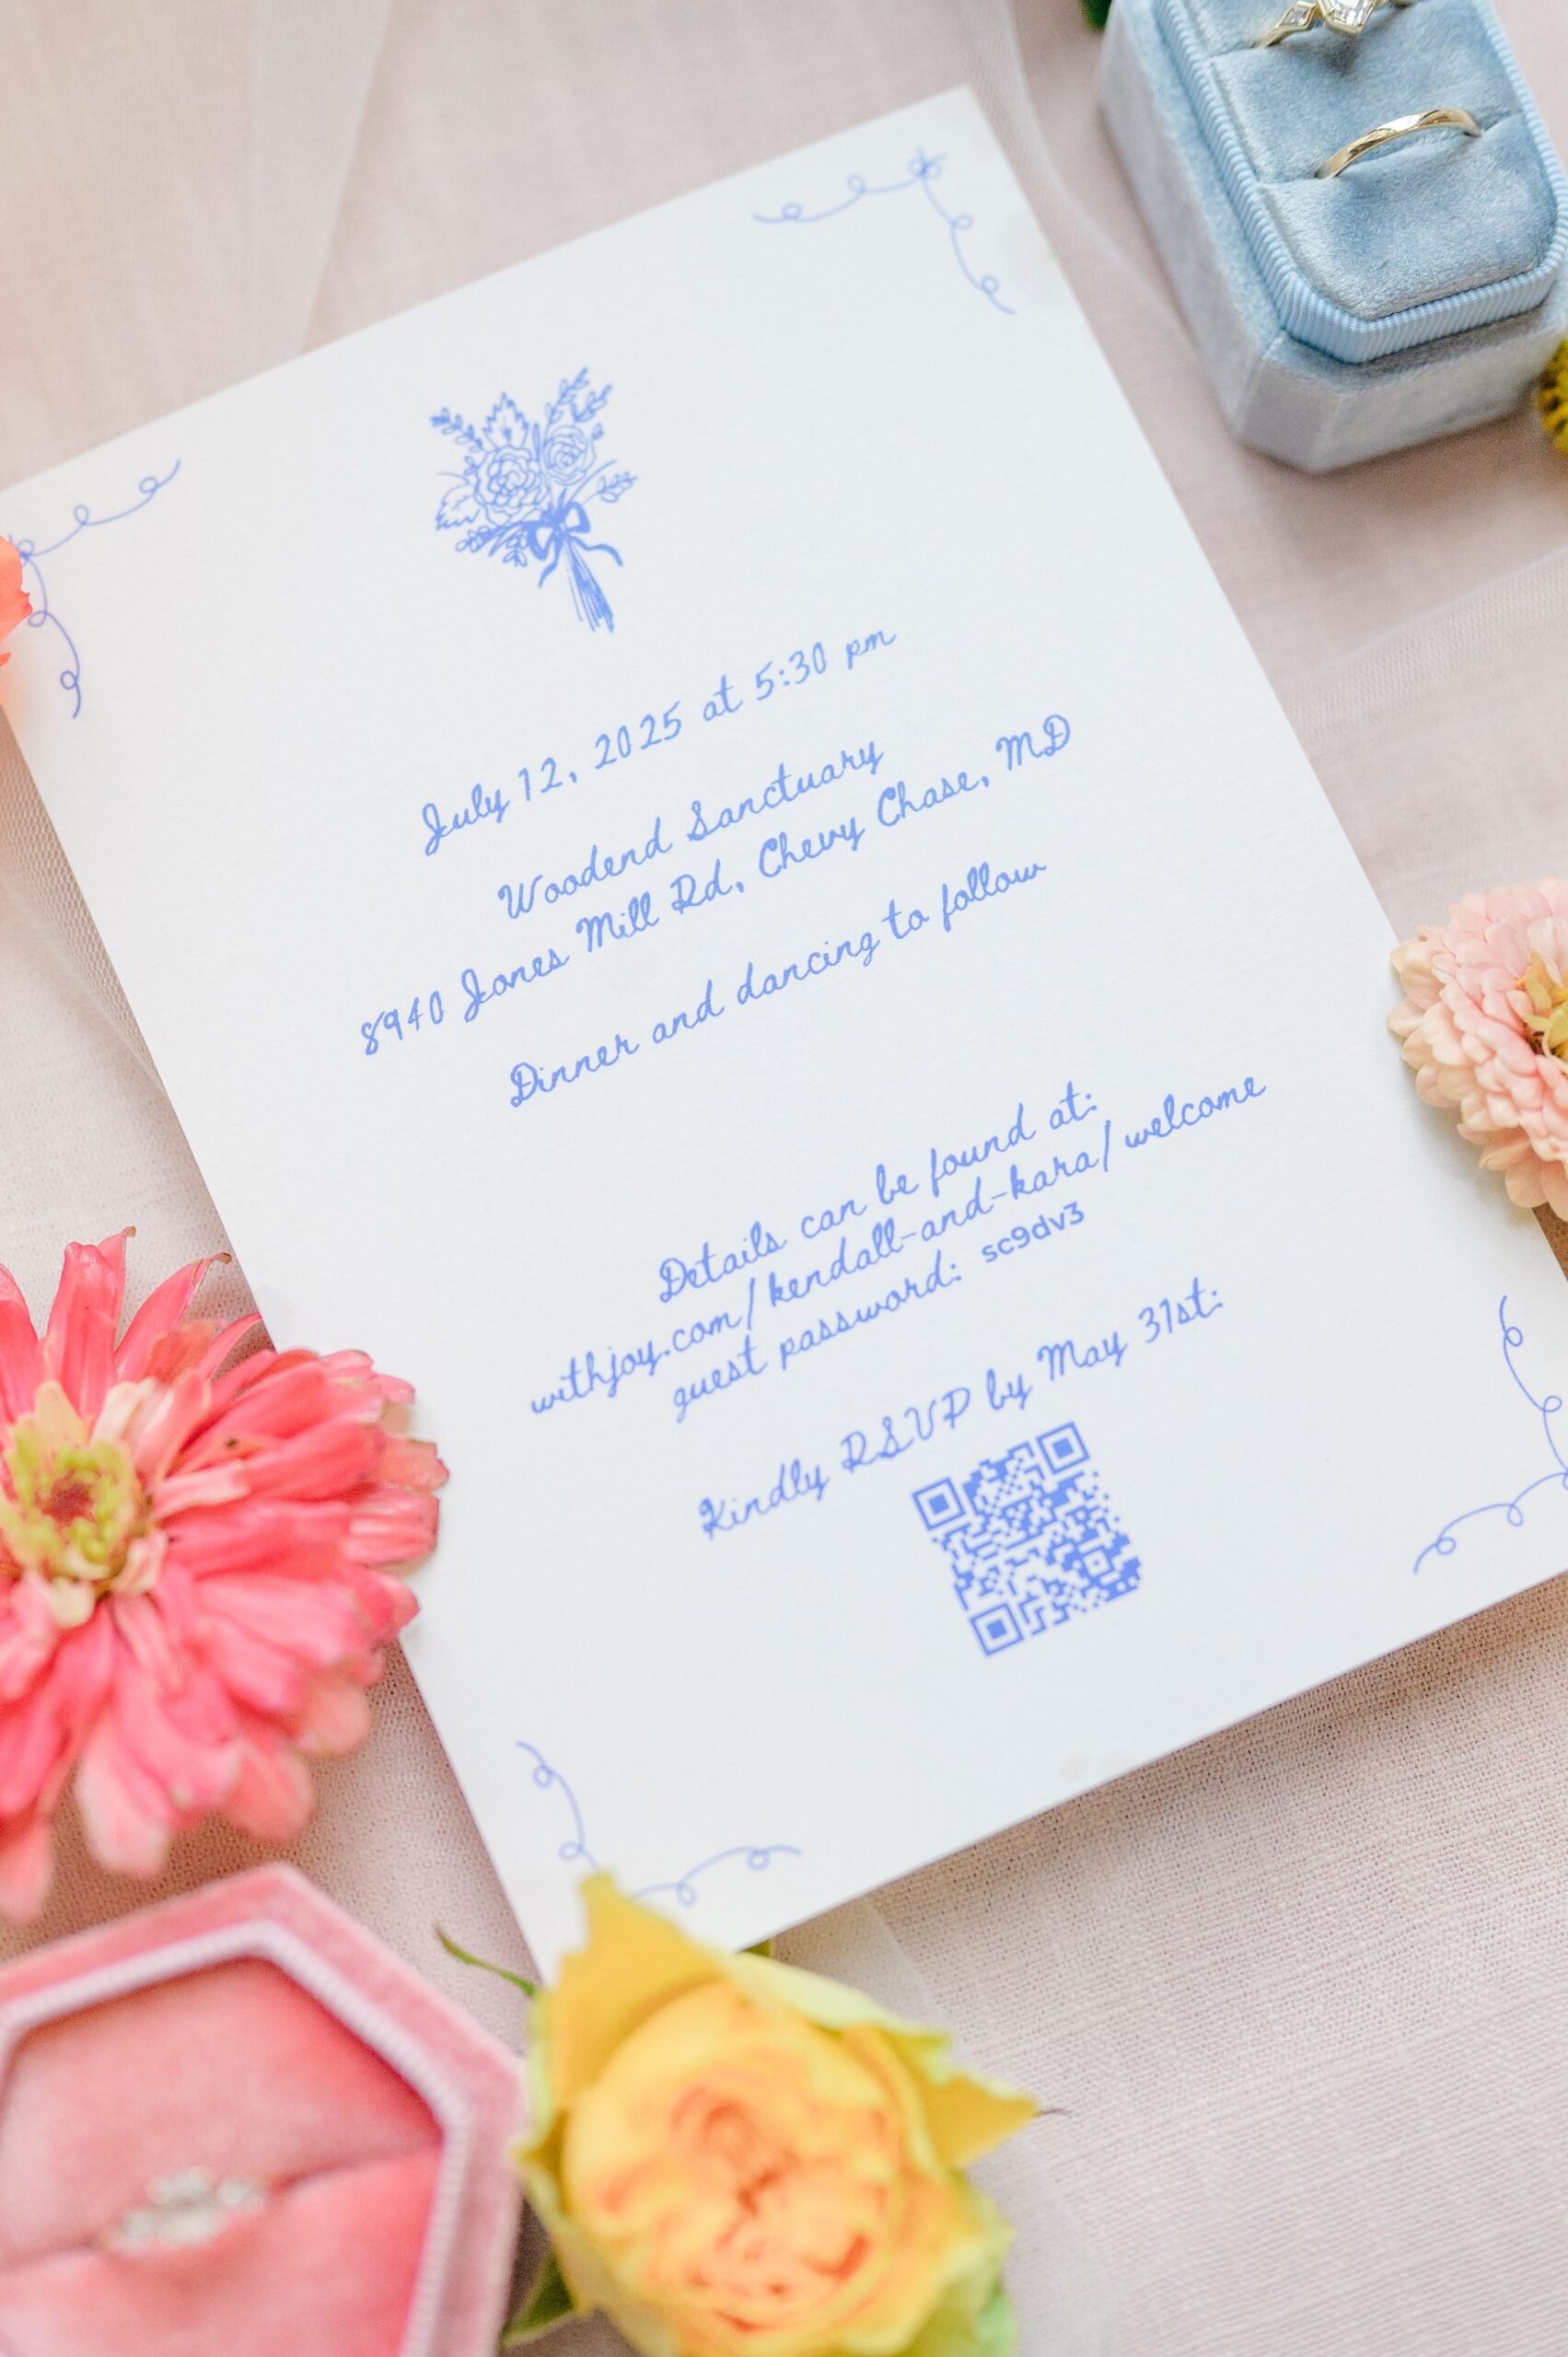 July 12, 2025 at 5:30 pm
Woodend Sanctuary
8940 Jones Mill Rd, Chevy Chase, MD
Dinner and dancing to follow
Details can be found at:
withjoy.com/kendall-and-kara/welcome
guest password: sc9dv3
Kindly RSVP by May 31st: